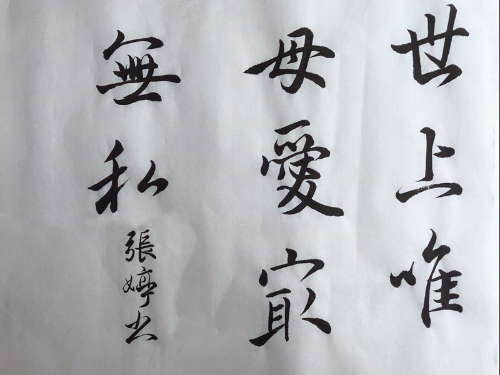 世上唯
母愛寂
無私
張婷书